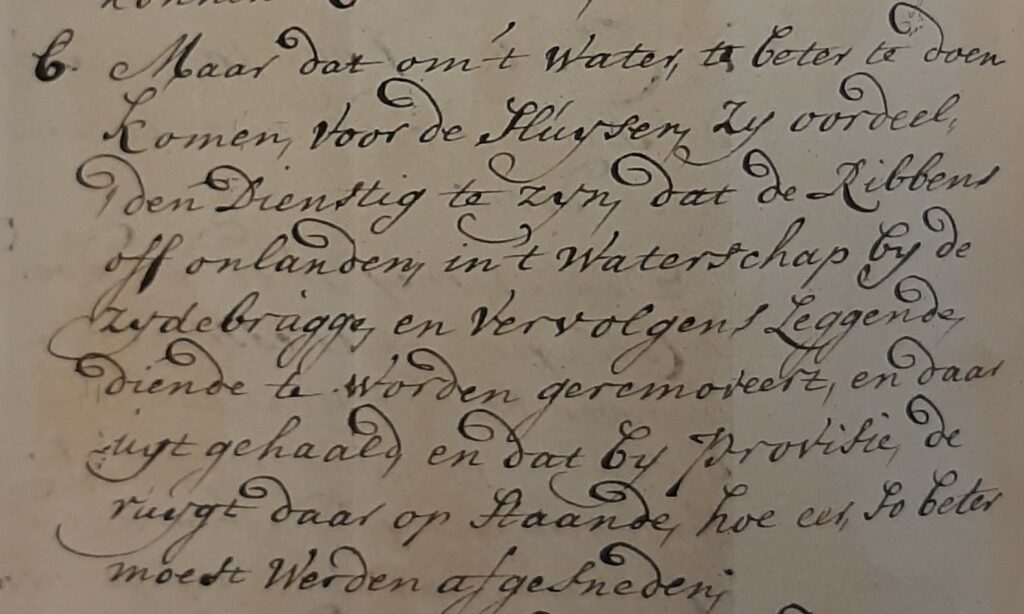 6. Maar dat om 't Water, te beter te doen
Komen, voor de Sluysen, zy oordeel,
den Dienstig te zyn, dat de Ribbens
off onlanden, in 't Waterschap by de
zydebrugge, en vervolgens Leggende,
diende te Worden geremoveert, en daar
uyt gehaald, en dat by Provisie, de
ruygt daar op staande, hoe eer, so beter
moest Werden afgesneden;